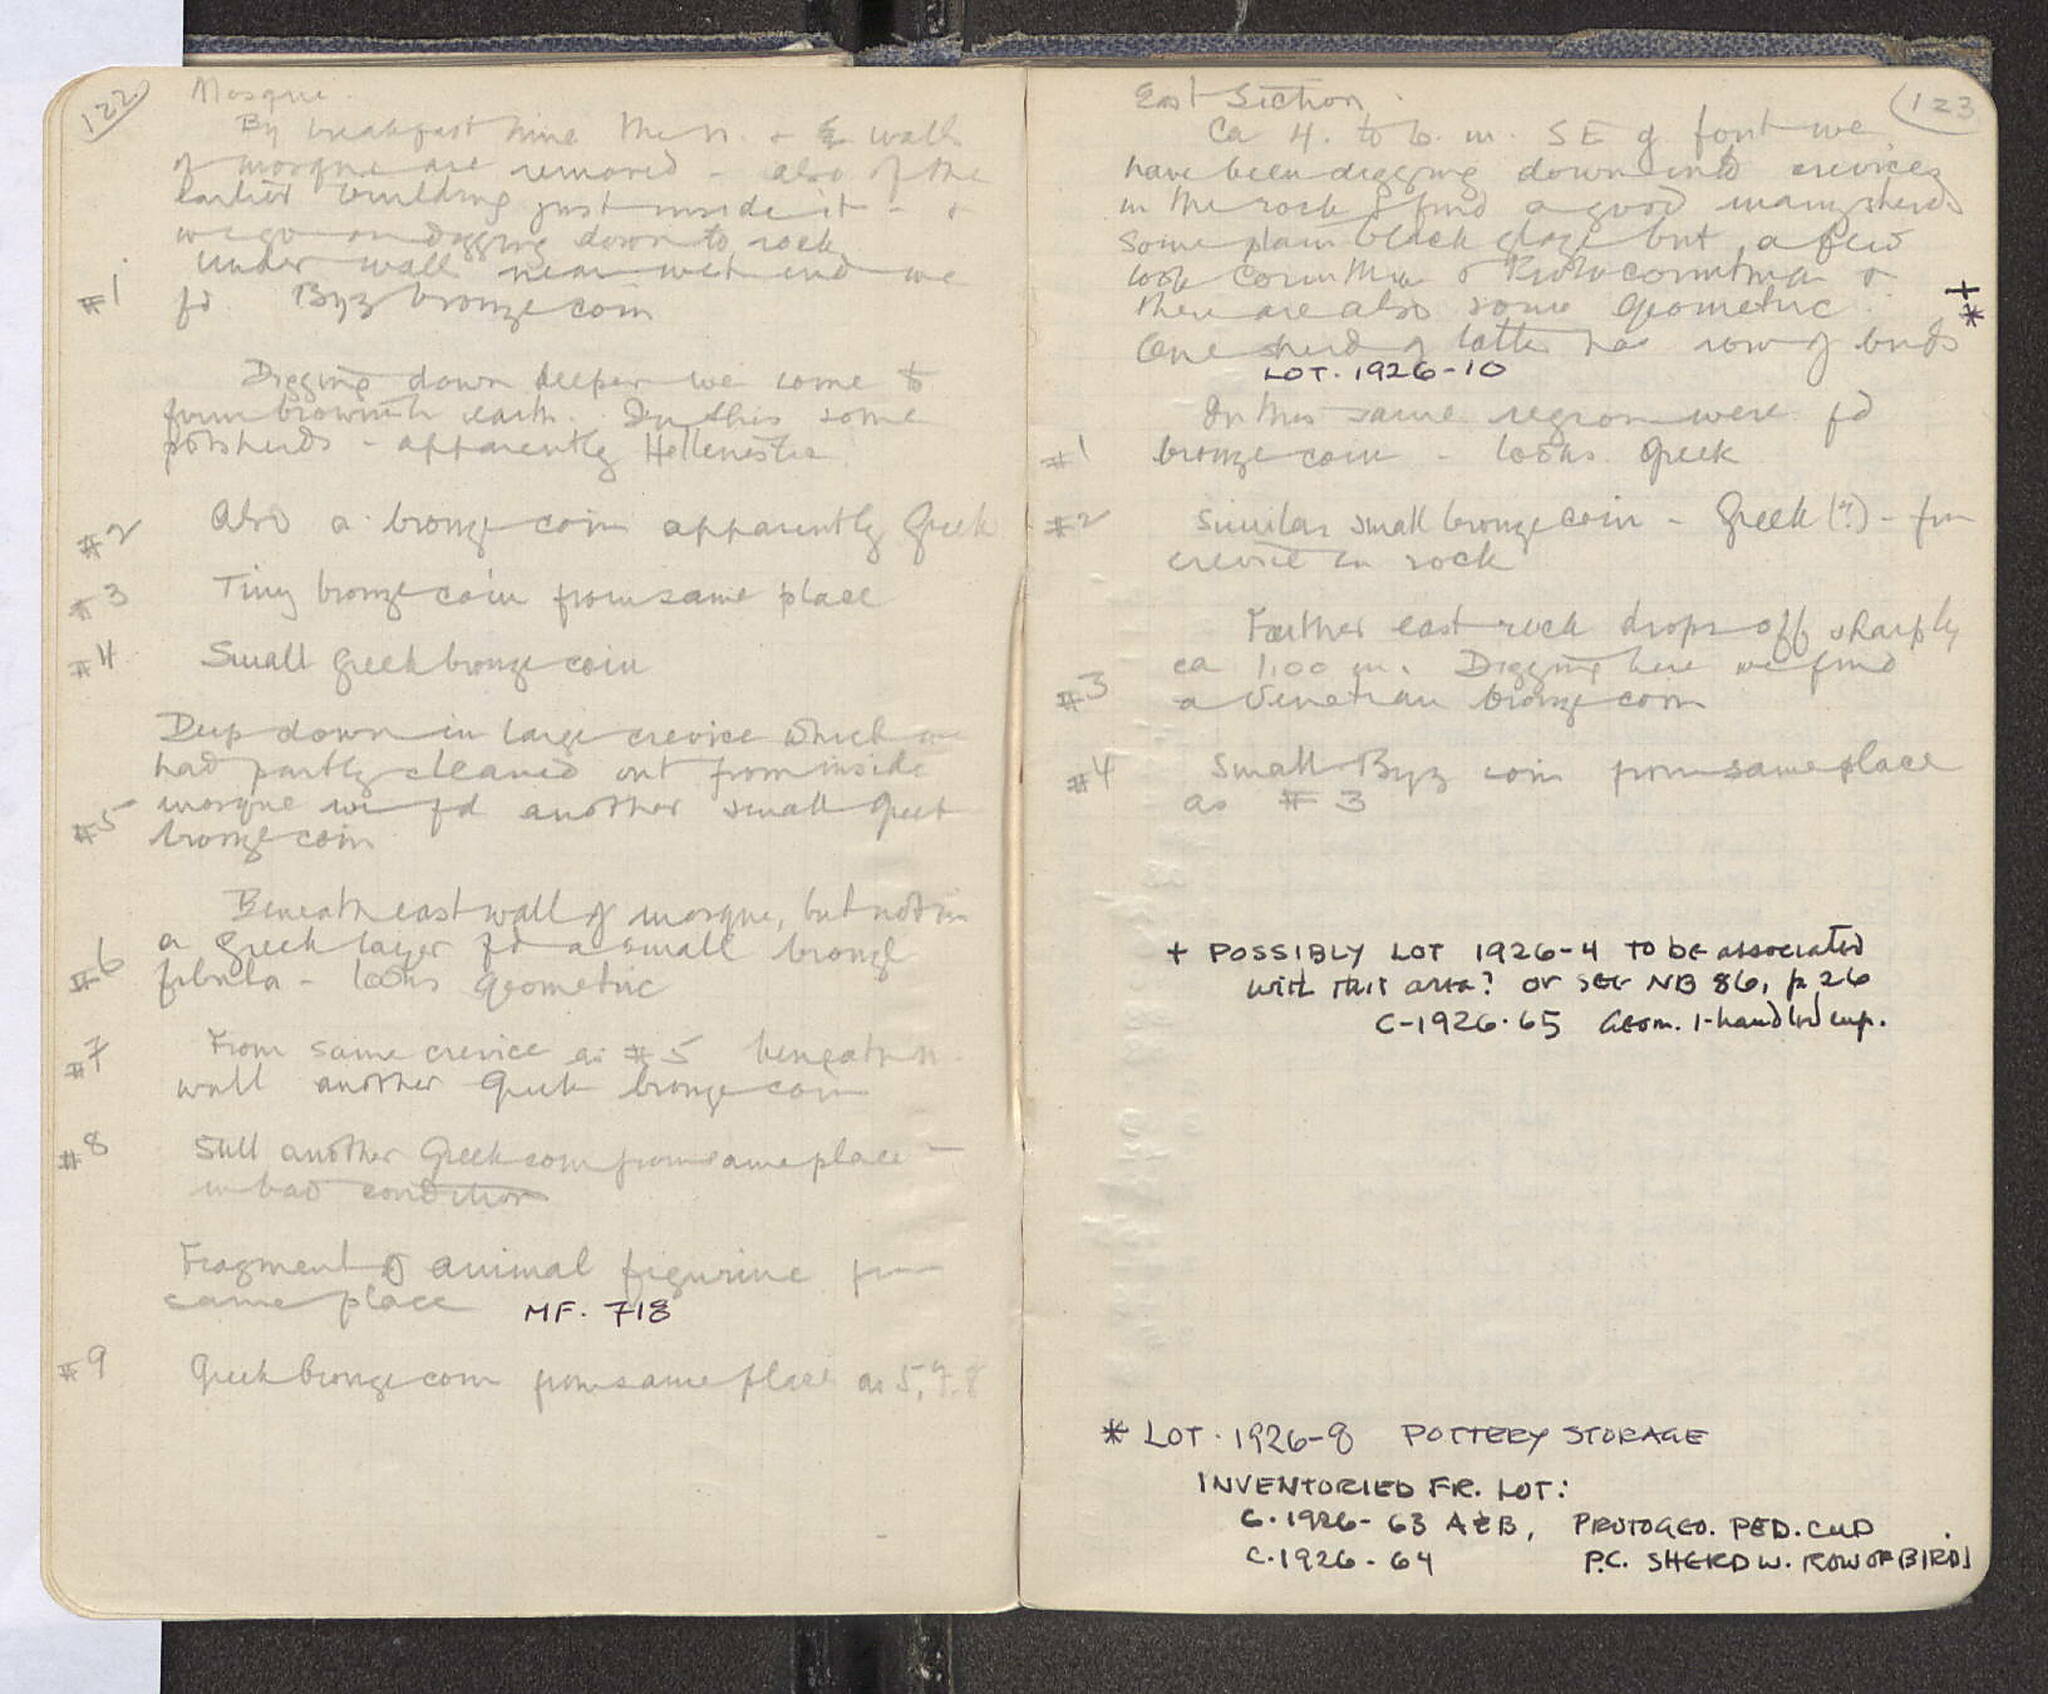 122
Mosque.
By breakfast time the n. + E walls
of mosque are removed - also of the
earlier building just inside it - +
we go on digging down to rock
Under wall near west end we
#1 fd. Byz bronze coin
Digging down deeper we come to
firm brownish earth. In this some
potsherds - apparently Hellenistic
#2 Also a bronze coin apparently Greek
#3 Tiny bronze coin from same place
#4 Small Greek bronze coin
Deep down in large crevice which we
had partly cleaned out from inside
#5 mosque we fd another small Greek
bronze coin
Beneath east wall of mosque, but not in
a Greek layer fd a small bronze
#6 fibula - looks geometric
#7 From same crevice as #5 beneath n.
wall another Greek bronze coin
#8 Still another Greek coin from same place -
in bad condition
Fragment of animal figurine from
same place MF. 718
#9 Greek bronze coin from same place as 5, 7, 8
123
East Section.
Ca 4. to 6. m. SE of font we
have been digging down into crevices
in the rock & find a good many sherds
some plain black glaze but a few
look Corinthian & Protocorinthian &
there are also some Geometric. +
*
One sherd of latter has row of birds
LOT. 1926-10
In this same region were fd
#1 bronze coin - looks Greek
#2 Similar small bronze coin - Greek (?) - from
crevice in rock
Farther east rock drops off sharply
ca 1.00 m. Digging here we find
#3 a Venetian bronze coin
#4 Small Byz coin from same place
as #3
+ POSSIBLY LOT 1926-4 TO BE associated
with this area? or see NB 86, p. 26
C-1926-65 Geom. 1-handled cup.
* LOT. 1926-8 POTTERY STORAGE
INVENTORIED FR. LOT:
C.1926-63 A&B, PROTOGEO. PED. CUP
C.1926-64 P.C. SHERD W. ROW OF BIRDS